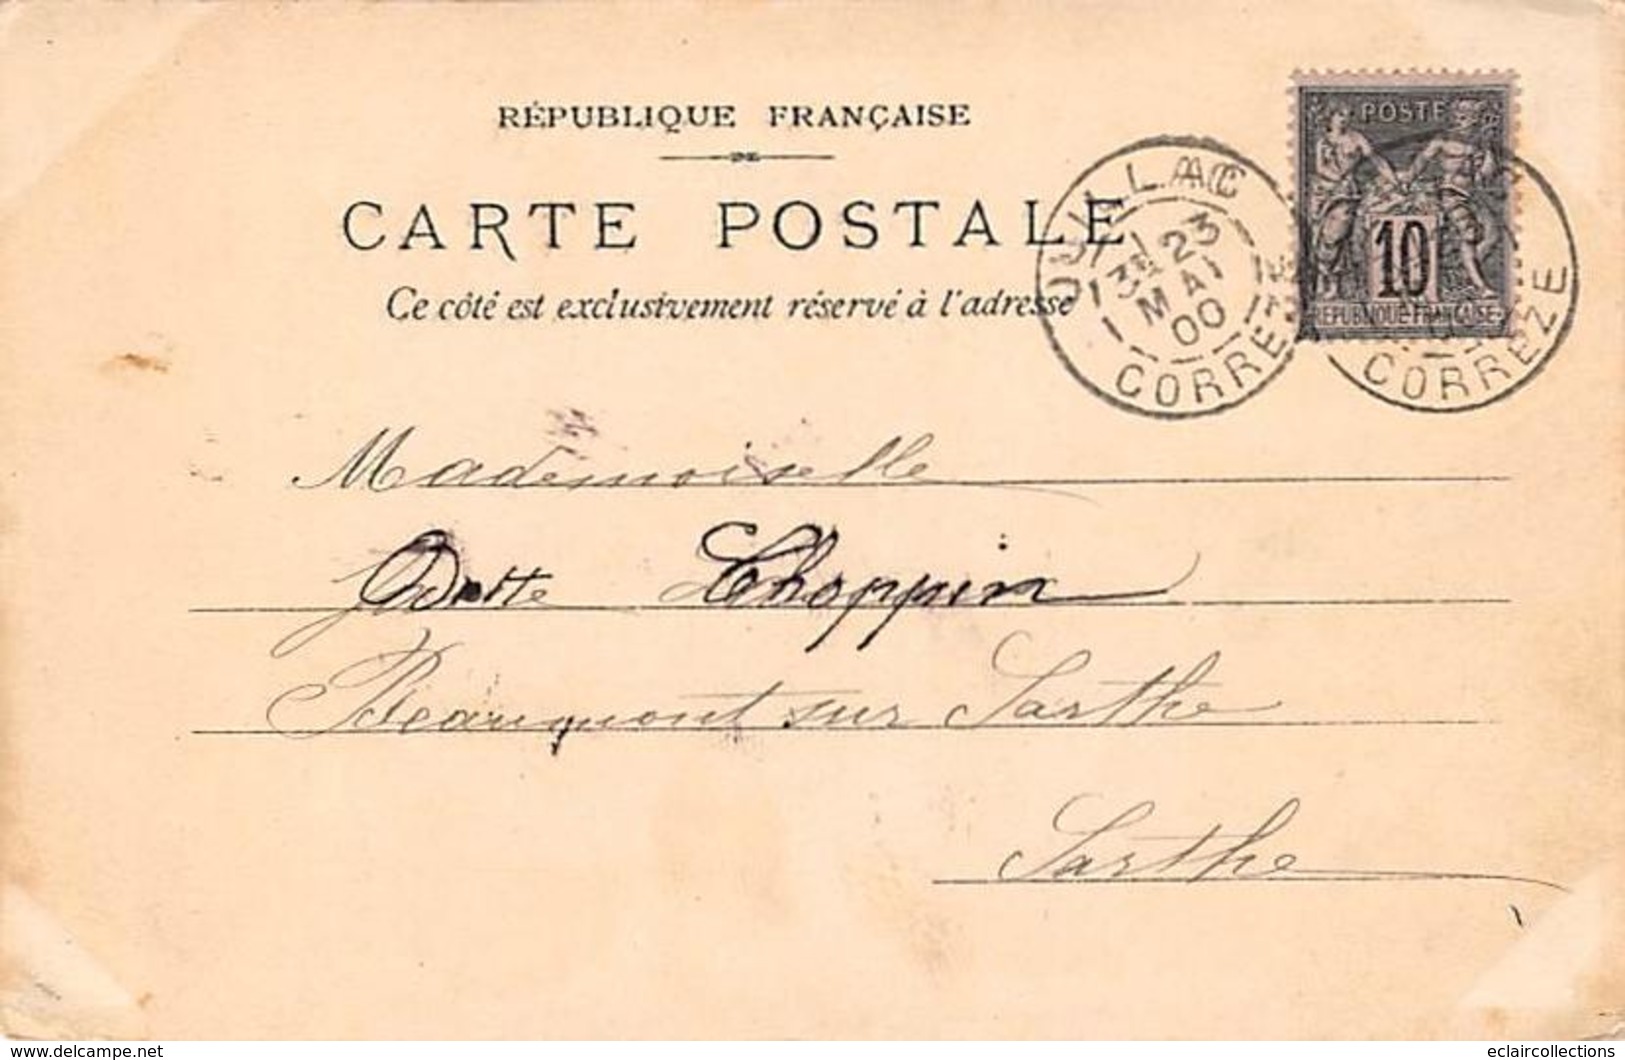 RÉPUBLIQUE FRANÇAISE
CARTE POSTALE
Ce côté est exclusivement réservé à l'adresse
POSTE
10
REPUBLIQUE FRANÇAISE
23
MAI
00
CORREZE
CORREZE
Mademoiselle
Odette Choppin
Beaumont sur Sarthe
Sarthe
www.delcampe.net
eclaircollections